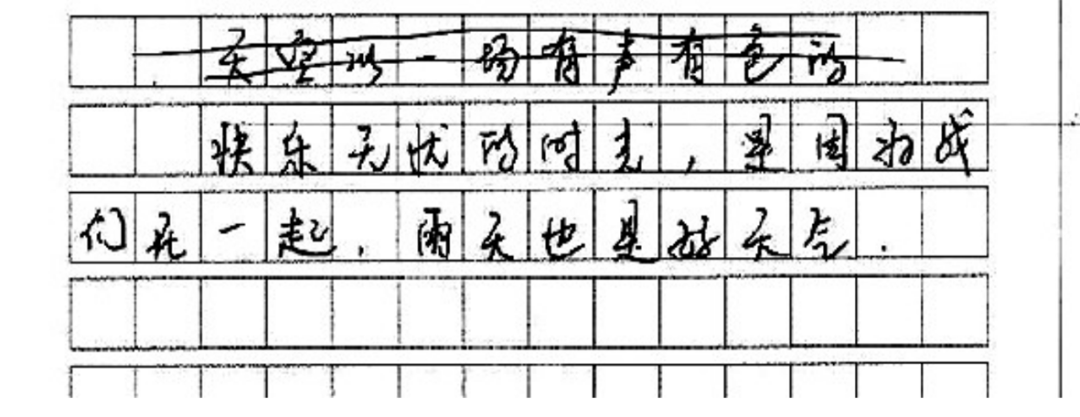 天空以一场有声有色的
快乐无忧的时光，是因为我
们在一起，雨天也是好天气.